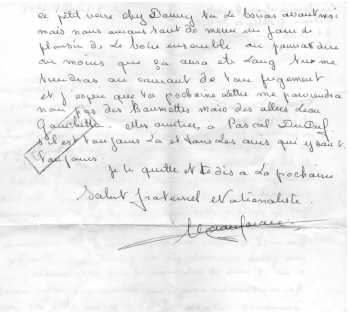 ce petit verre chez Danny tu le boiras avant moi
mais nous aurons tant de même un jour le
plaisir de le boire ensemble on pourra dire
au moins que ça aura été long tu me
tiendras au courant de ton jugement
et j'espère que ta pochaine lettre me parviendra
non pas des Baumettes mais des allées Léon
Gambetta. Mes amitiés à Pascal
s'il est toujours là et tous les amis qui y sont
toujours
je te quitte et te dis à la pochaine
Salut fraternel et nationaliste.